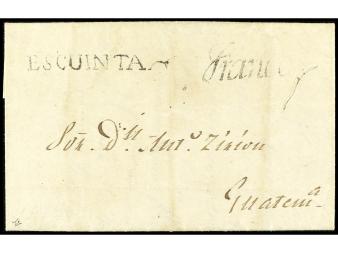 ESCUINTA Franco
Sor. Dn. Anto. Zirion
Guatema.